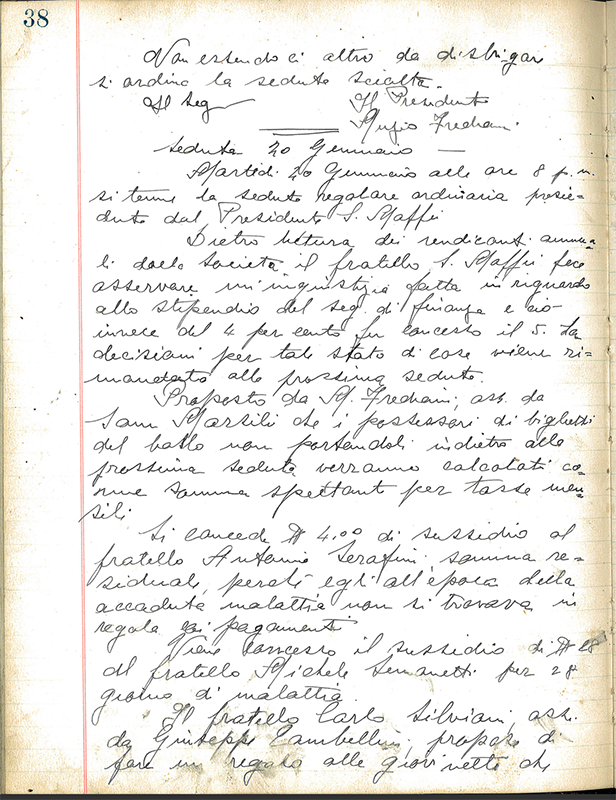 38
Non essendoci altro da disbrigar
si ordina la seduta sciolta.
Il Seg Il Presidente
Mugio Frediani
Seduta 20 Gennaio
Martedi 20 Gennaio alle ore 8 p.m.
si tenne la seduta regolare ordinaria presie=
duta dal Presidente S. Maffei
Dietro lettura dei rendiconti annua=
li della Società il fratello S. Maffei fece
osservare un'ingiustizia fatta in riguardo
allo stipendio del seg. di finanze e ciò
invece del 4 per cento fu concesso il 5. La
decisioni per tale stato di cose viene ri=
mandata alla prossima seduta.
Proposto da M. Frediani, ass. da
Sam Marsili che i possessori di biglietti
del ballo non portandoli indietro alla
prossima seduta verranno calcolati co=
me somma spettante per tasse men=
sili
Si concede $ 4.00 di sussidio al
fratello Antonio Serafini somma re=
siduale, perchè egli all'epoca della
accaduta malattia non si trovava in
regola coi pagamenti
Viene concesso il sussidio di $ 28
al fratello Michele per 28
giorno di malattia.
Il fratello Carlo Silviani, ass.
da Giuseppe Lambellini, propose di
fare un regalo alle giovinette che